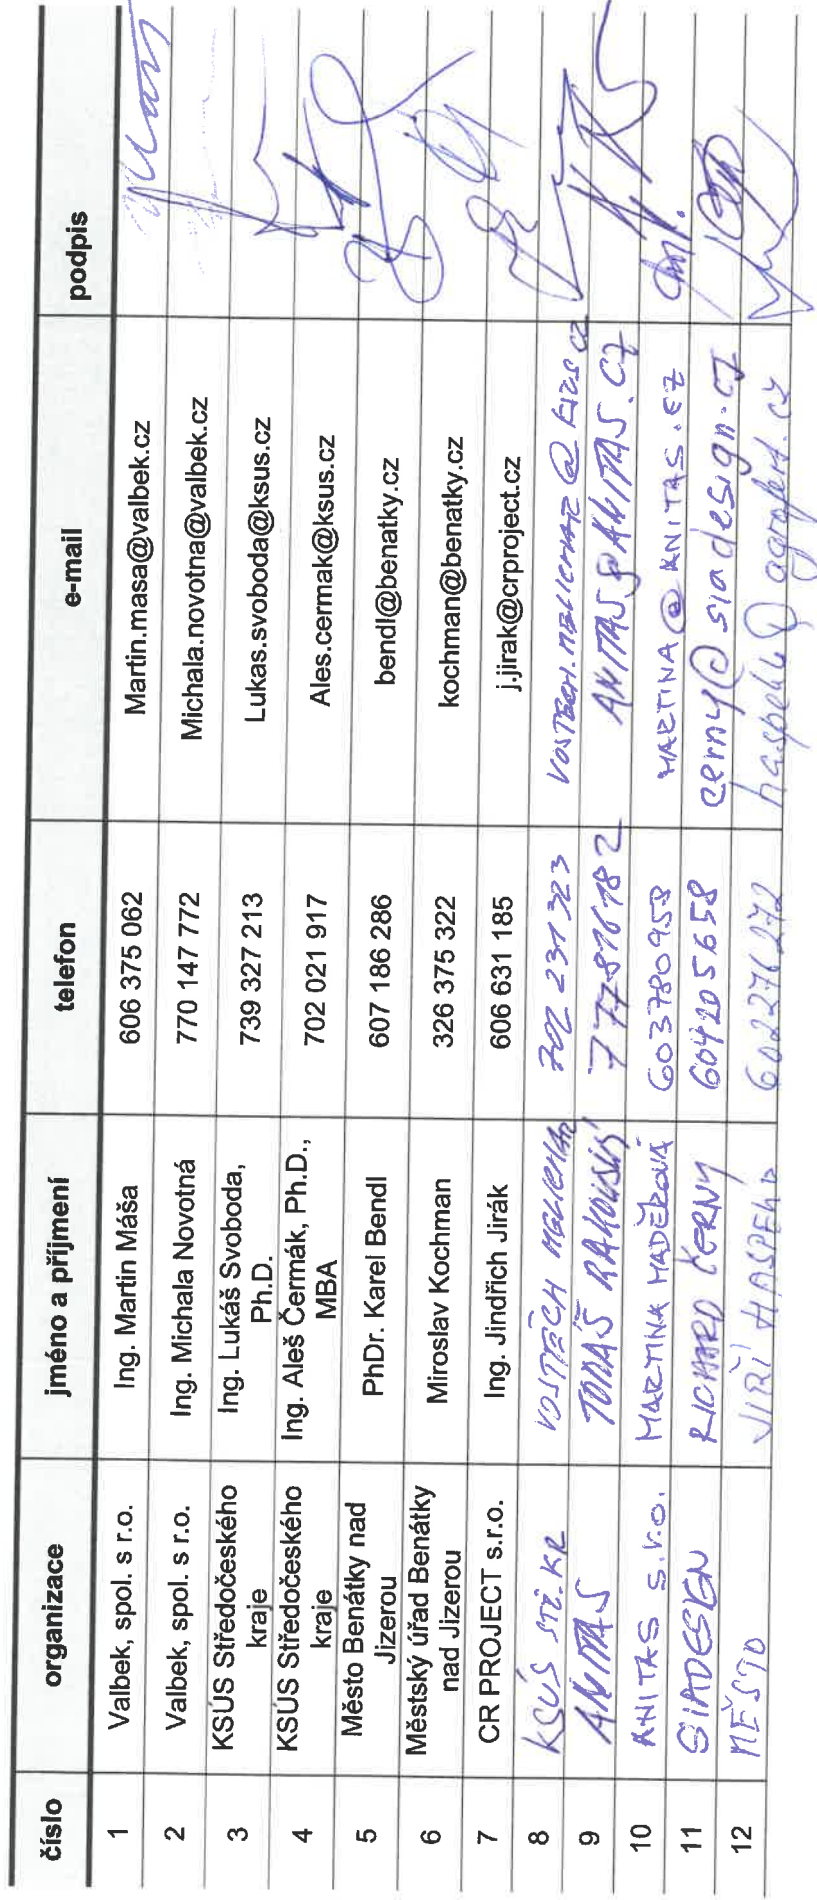 číslo organizace jméno a příjmení telefon e-mail podpis
1 Valbek, spol. s r.o. Ing. Martin Máša 606 375 062 Martin.masa@valbek.cz
2 Valbek, spol. s r.o. Ing. Michala Novotná 770 147 772 Michala.novotna@valbek.cz
3 KSÚS Středočeského kraje Ing. Lukáš Svoboda, Ph.D. 739 327 213 Lukas.svoboda@ksus.cz
4 KSÚS Středočeského kraje Ing. Aleš Čermák, Ph.D., MBA 702 021 917 Ales.cermak@ksus.cz
5 Město Benátky nad Jizerou PhDr. Karel Bendl 607 186 286 bendl@benatky.cz
6 Městský úřad Benátky nad Jizerou Miroslav Kochman 326 375 322 kochman@benatky.cz
7 CR PROJECT s.r.o. Ing. Jindřich Jirák 606 631 185 j.jirak@crproject.cz
8 KSÚS STČ. KR VOJTĚCH MELICHAR 702 231 323
9 ANITAS TOMÁŠ RAKOUSKÝ 777816182 ANITAS@ANITAS.CZ
10 ANITAS s.r.o. MARTINA 603780953 MARTINA@ANITAS.CZ
11 SIADESIGN RICHARD ČERNÝ 604205658 cerny@siadesign.cz
12 MĚSTO JIŘÍ HASPEKL 602276272